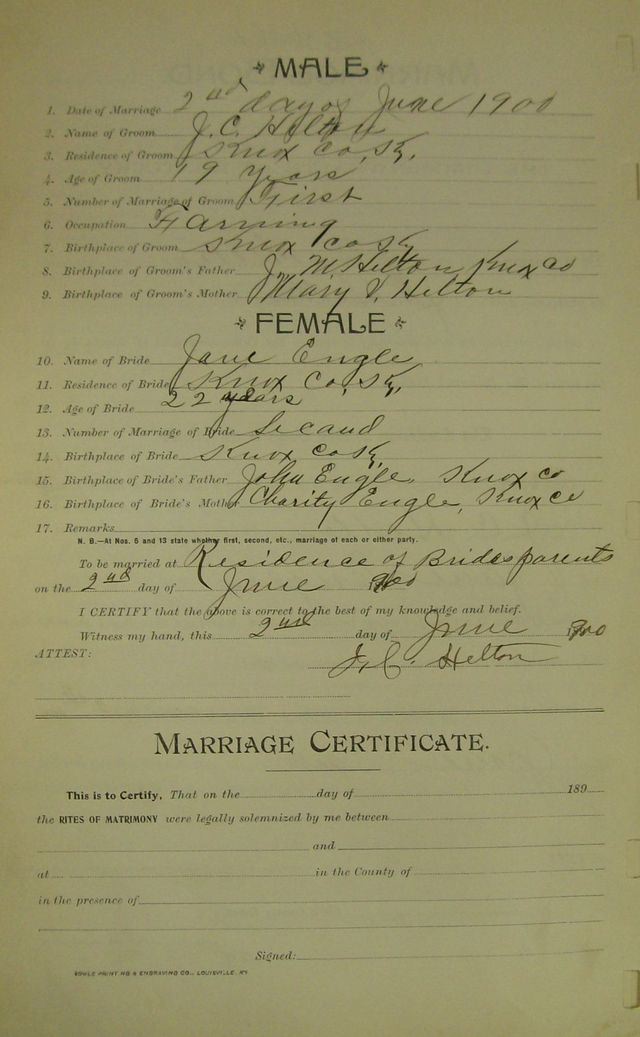 MALE
1. Date of Marriage 2nd day of June 1900
2. Name of Groom J. C. Helton
3. Residence of Groom Knox Co, Ky.
4. Age of Groom 19 Years
5. Number of Marriage of Groom First
6. Occupation Farming
7. Birthplace of Groom Knox Co Ky
8. Birthplace of Groom's Father J. M. Helton, Knox Co
9. Birthplace of Groom's Mother Mary J. Helton
FEMALE
10. Name of Bride Jane Engle
11. Residence of Bride Knox Co, Ky,
12. Age of Bride 22 years
13. Number of Marriage of Bride Secaud
14. Birthplace of Bride Knox Co Ky,
15. Birthplace of Bride's Father John Engle, Knox Co
16. Birthplace of Bride's Mother Charity Engle, Knox Co
17. Remarks
N. B.—At Nos. 5 and 13 state whether first, second, etc., marriage of each or either party.
To be married at Residence of Brides parents
on the 2nd day of June 1900
I CERTIFY that the above is correct to the best of my knowledge and belief.
Witness my hand, this 2nd day of June 1900
ATTEST: J. C. Helton
MARRIAGE CERTIFICATE.
This is to Certify, That on the day of 189
the RITES OF MATRIMONY were legally solemnized by me between
and
at in the County of
in the presence of
Signed:
PRINTING & ENGRAVING CO., LOUISVILLE, KY